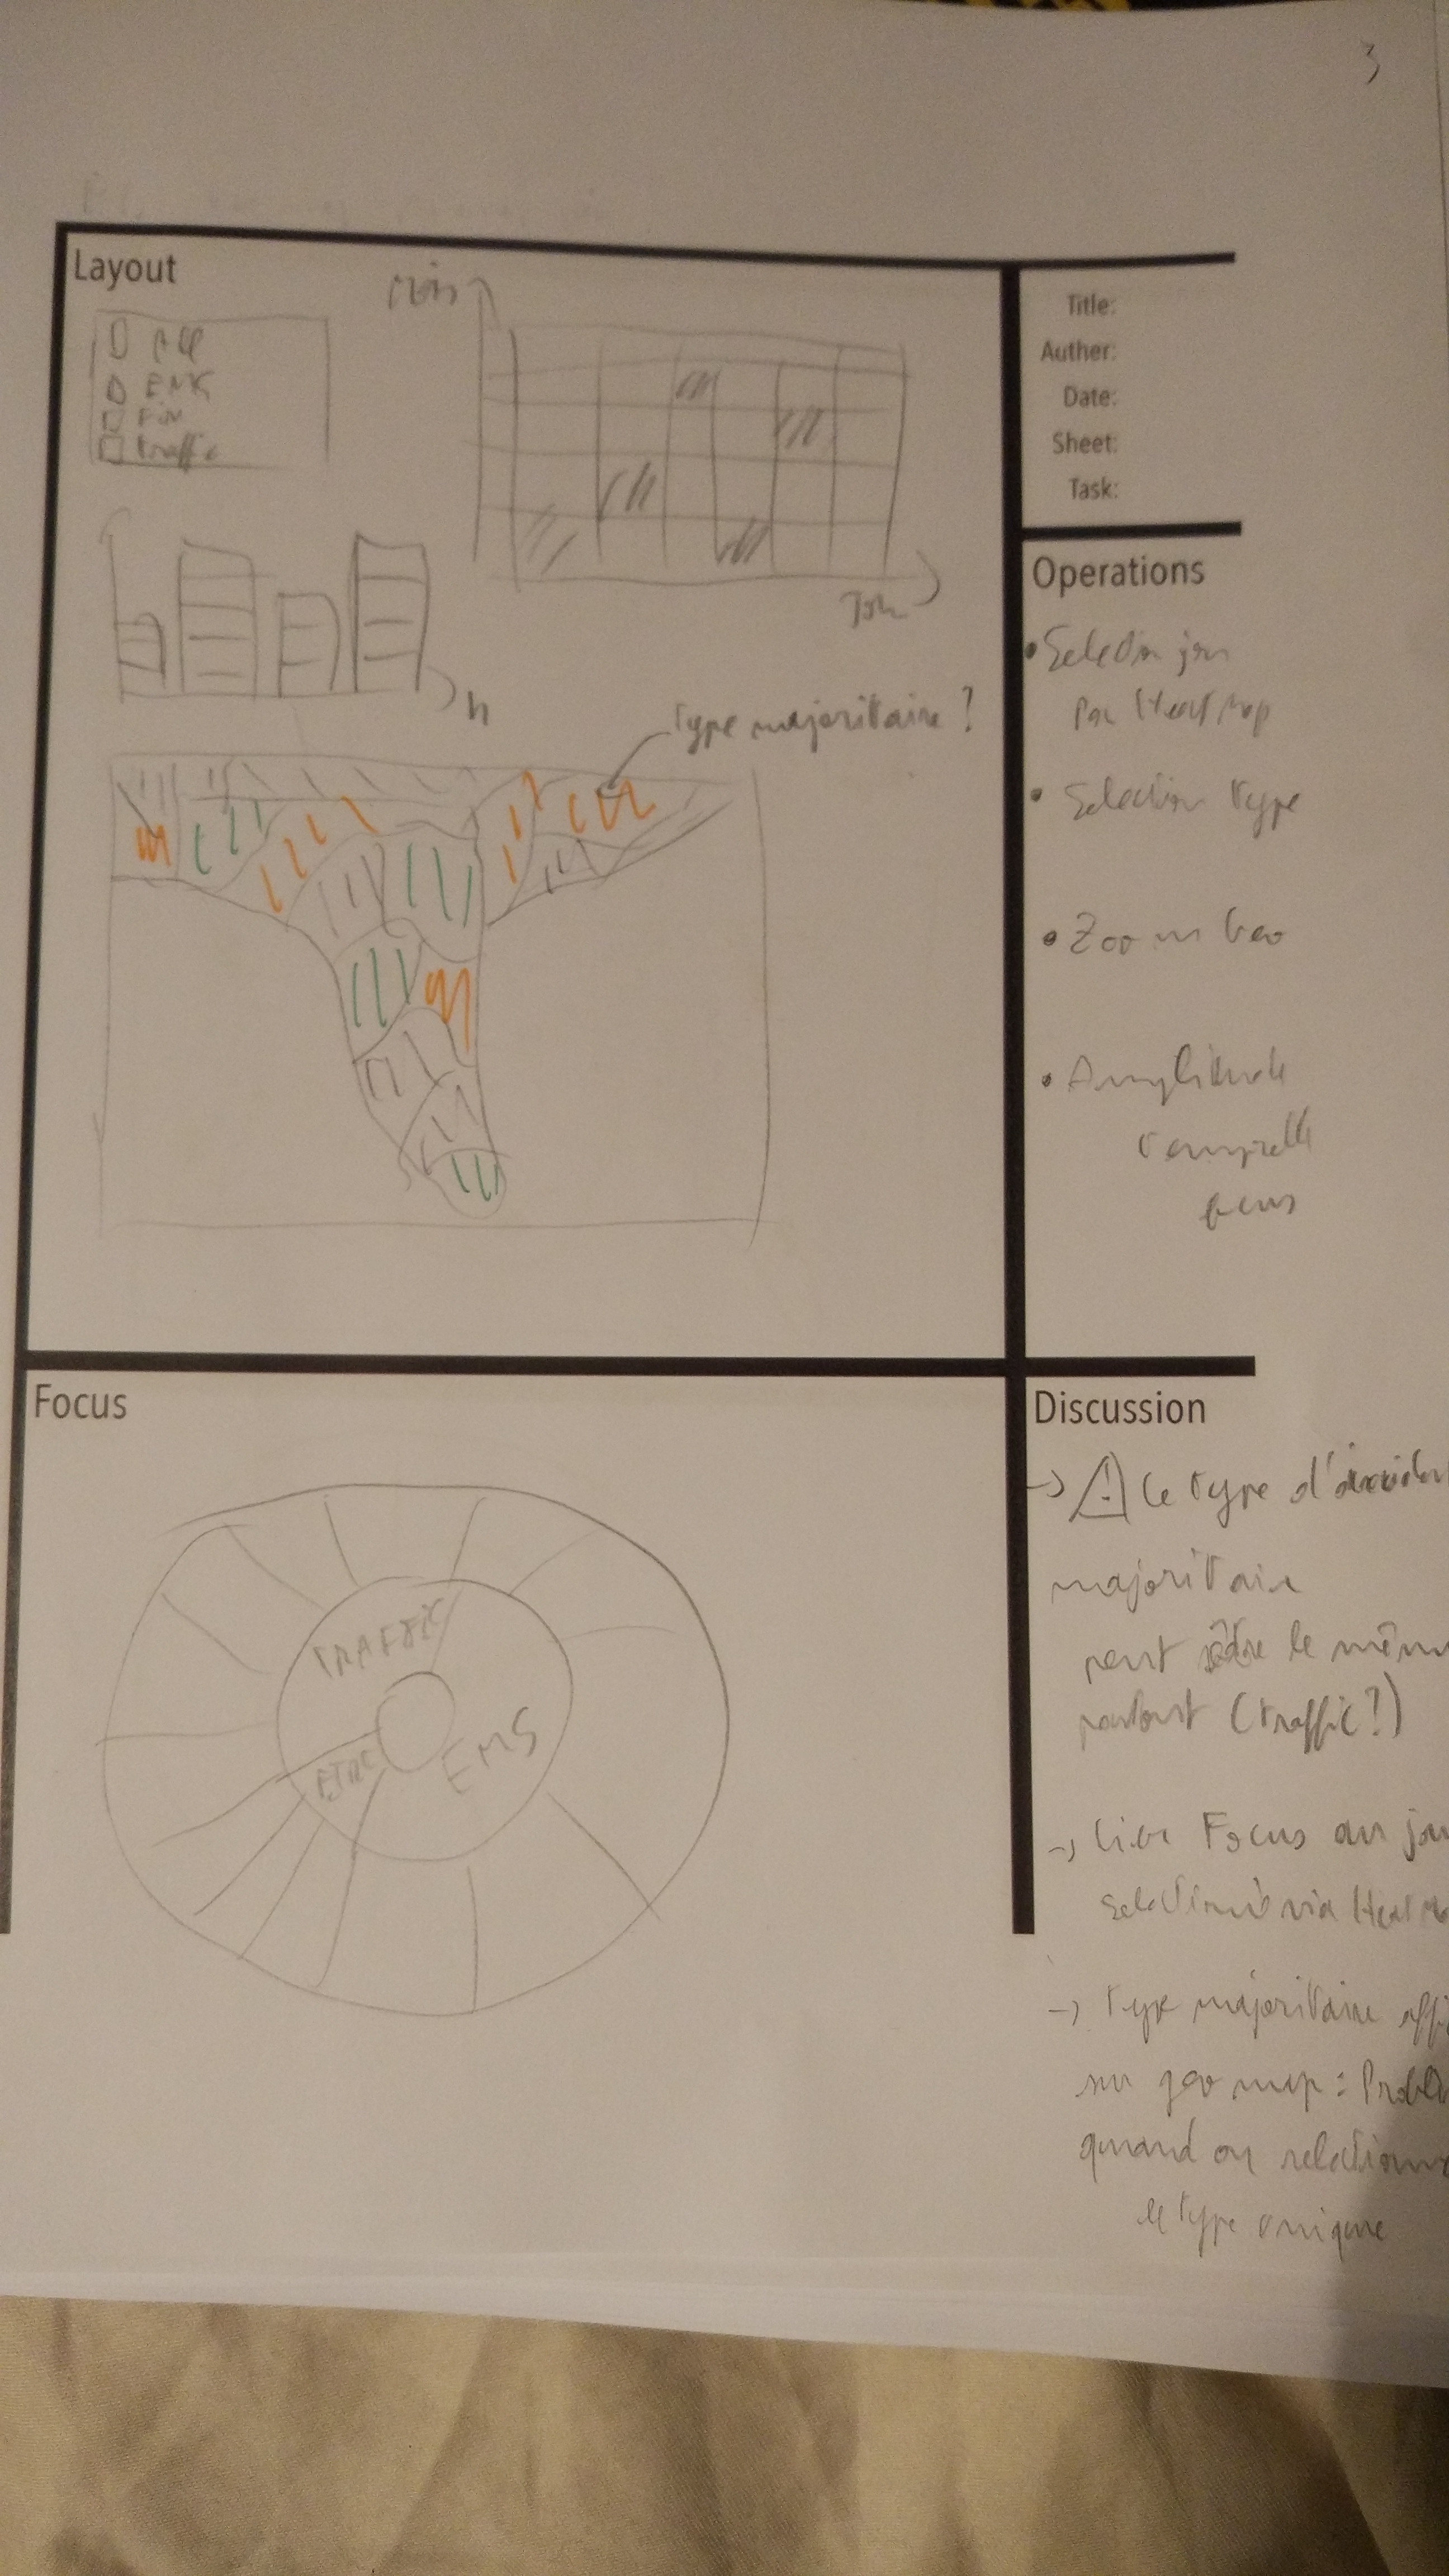 3
Layout
Mois
All
EMS
Fire
traffic
Jour
h
Type majoritaire ?
Title:
Auther:
Date:
Sheet:
Task:
Operations
• Selection jour
par HeatMap
• Selection type
• Zoom Geo
• Amplitude
temporelle
focus
Focus
TRAFFIC
EMS
FIRE
Discussion
-> ! le type d'acciden
majoritaire
peut être le mêm
partout (traffic?)
-> lier Focus au jou
via HeatMa
-> type majoritaire affi
sur geo map : Probl
quand on
le type unique